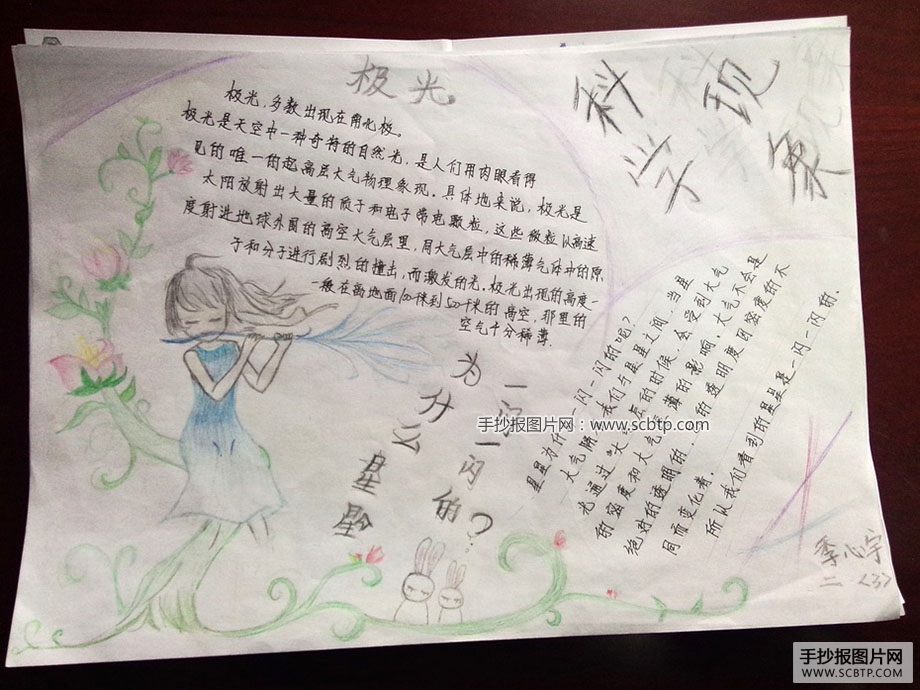 极光
科学现象
极光，多数出现在南北极。
极光是天空中一种奇特的自然光，是人们用肉眼看得
见的唯一的超高层大气物理象现。具体地来说，极光是
太阳放射出大量的质子和电子带电颗粒，这些微粒以高速
度射进地球外围的高空大气层里，同大气层中的稀薄气体中的原
子和分子进行剧烈的撞击，而激发的光。极光出现的高度一
般在离地面100千米到500千米的高空，那里的
空气十分稀薄.
为什么星星
一闪一闪的？
星星为什 一闪一闪的呢？
大气 我们与星星之间，当星
光通过 大 层的时候，会受到大气
的密度和大气 薄的影响。大气不会是
绝对的透明的. 的透明度因密度的不
同而变化着.
所以我们看到的星星是一闪一闪的.
季心宇
二〈3〉
手抄报图片网：www.scbtp.com
手抄报图片网
WWW.SCBTP.COM